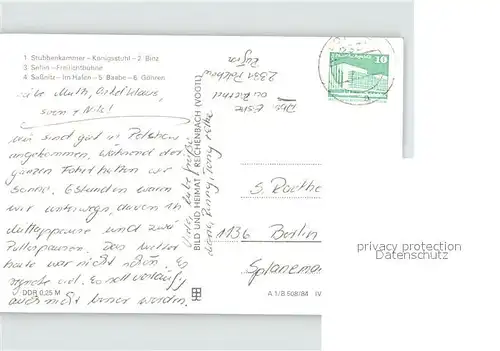 1 Stubbenkammer - Königsstuhl - 2 Binz
3 Sellin - Freilichtbühne
4 Saßnitz - Im Hafen - 5 Baabe - 6 Göhren
Liebe Mutti, Onkel Klaus,
Sven + Nils!
Wir sind gut in
angekommen. Während der
ganzen Fahrt hatten wir
Sonne. 6 Stunden waren
wir unterwegs, davon 1h
Mittagspause und zwei
Pullerpausen. Das Wetter
heute war nicht schön. Es
viel. Es soll vorläufig
auch nicht besser werden.
DDR 0,25 M
Viele liebe Grüße
BILD UND HEIMAT REICHENBACH (VOGTL)
2331
Rügen
10
S.
1136 Berlin
A 1/B 508/84 IV
privacy protection
Datenschutz